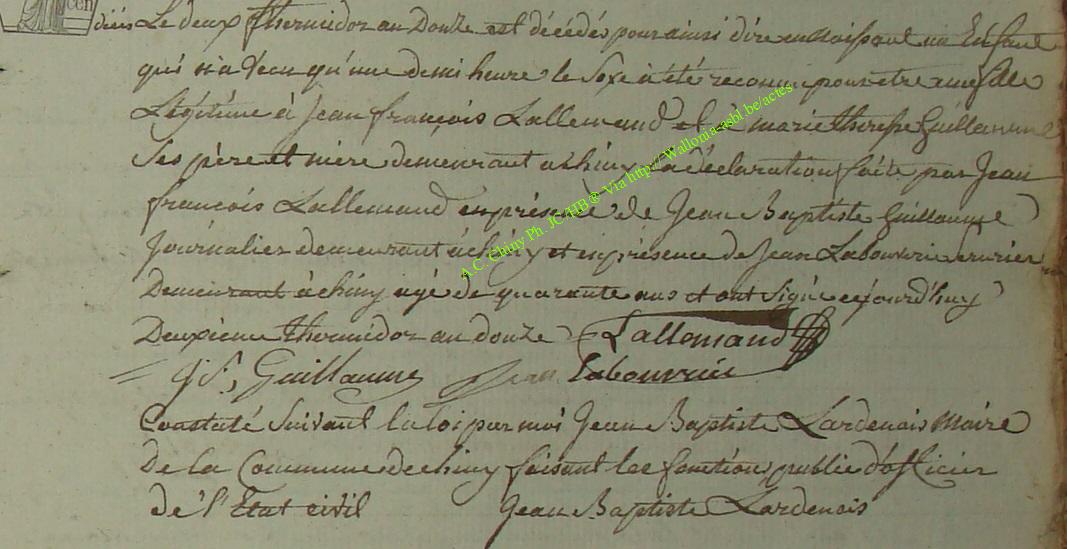 cen
décès Le deux thermidor an douze est décédés pour ainsi dire en naissant un Enfant
qui n'a vecu qu'une demi heure le sexe a été reconnu pour etre une fille
Légitime à Jean françois Lallemand et à marie theresse Guillaume
Ses père et mère demeurant a chiny la déclaration faite par Jean
francois Lallemand en présence de Jean Baptiste Guillaume
Journalier demeurant à chiny et en présence de Jean Labouverie
Demeurant à chiny agé de quarante ans et ont signé cejourd'huy
Deuxieme thermidor an douze Lallemand
Guillaume Jean Labouverie
Constaté Suivant la loi par moi Jean Baptiste Lardenois Maire
De la Commune de chiny faisant les fonctions public d'officier
de l'Etat civil Jean Baptiste Lardenois
A.C. Chiny Ph. JC/HB ® Via http://Wallonia-asbl.be/actes